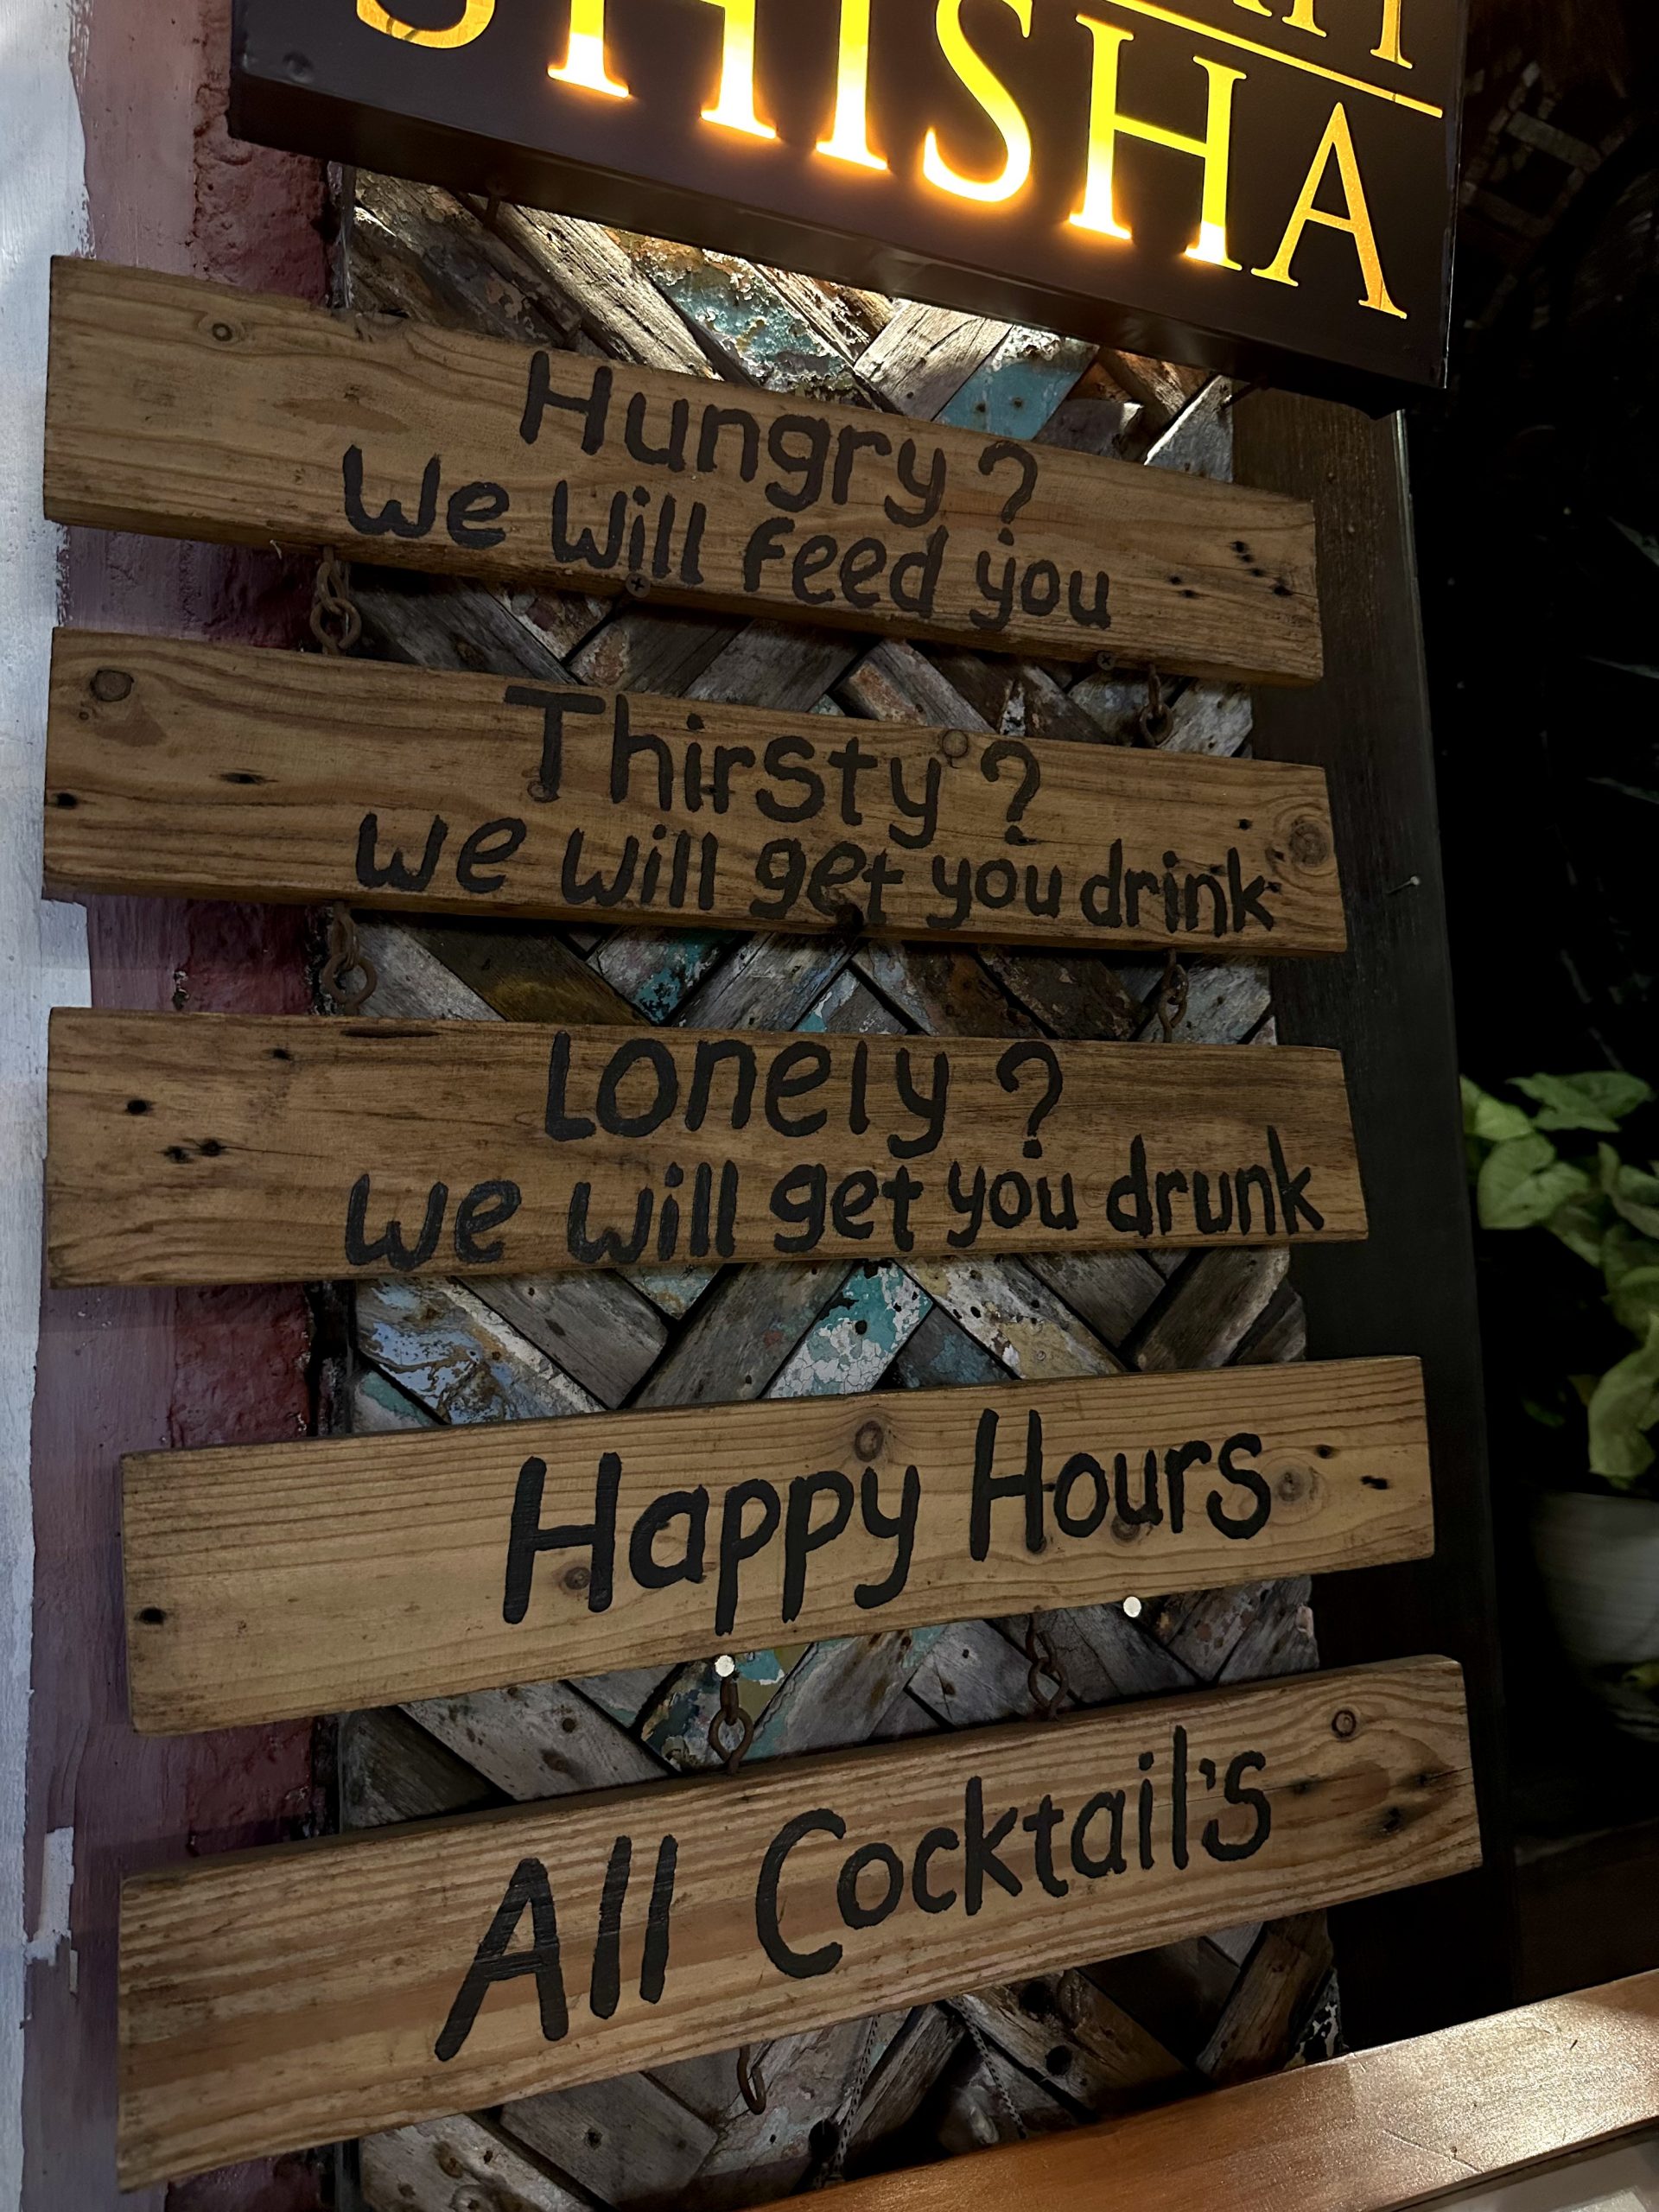 SHISHA
Hungry ?
We will feed you
Thirsty ?
We will get you drink
Lonely ?
We will get you drunk
Happy Hours
All Cocktail's